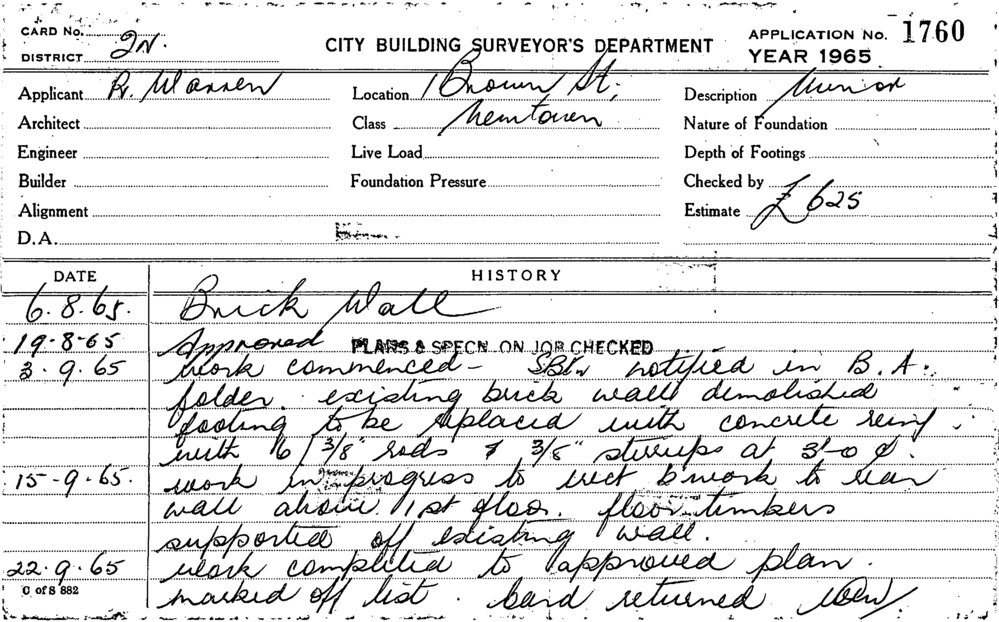 CARD No.
DISTRICT 2N.
CITY BUILDING SURVEYOR'S DEPARTMENT
APPLICATION No. 1760
YEAR 1965
Applicant R. Warren
Location 1 Brown St;
Description Minor
Architect
Class Newtown
Nature of Foundation
Engineer
Live Load
Depth of Footings
Builder
Foundation Pressure
Checked by
Alignment
Estimate £625
D.A.
DATE HISTORY
6.8.65. Brick Wall
19-8-65 Approved PLANS & SPECN. ON JOB CHECKED
3.9.65 work commenced - notified in B.A.
folder. existing brick wall demolished
footing to be replaced with concrete reinf
with 6/3/8" rods & 3/8" stirrups at 3'-0
15-9-65. work in progress to erect bwork to rear
wall above 1st floor. floor timbers
supported off existing wall.
22.9.65 work completed to approved plan.
C of S 882
marked off list. Card returned